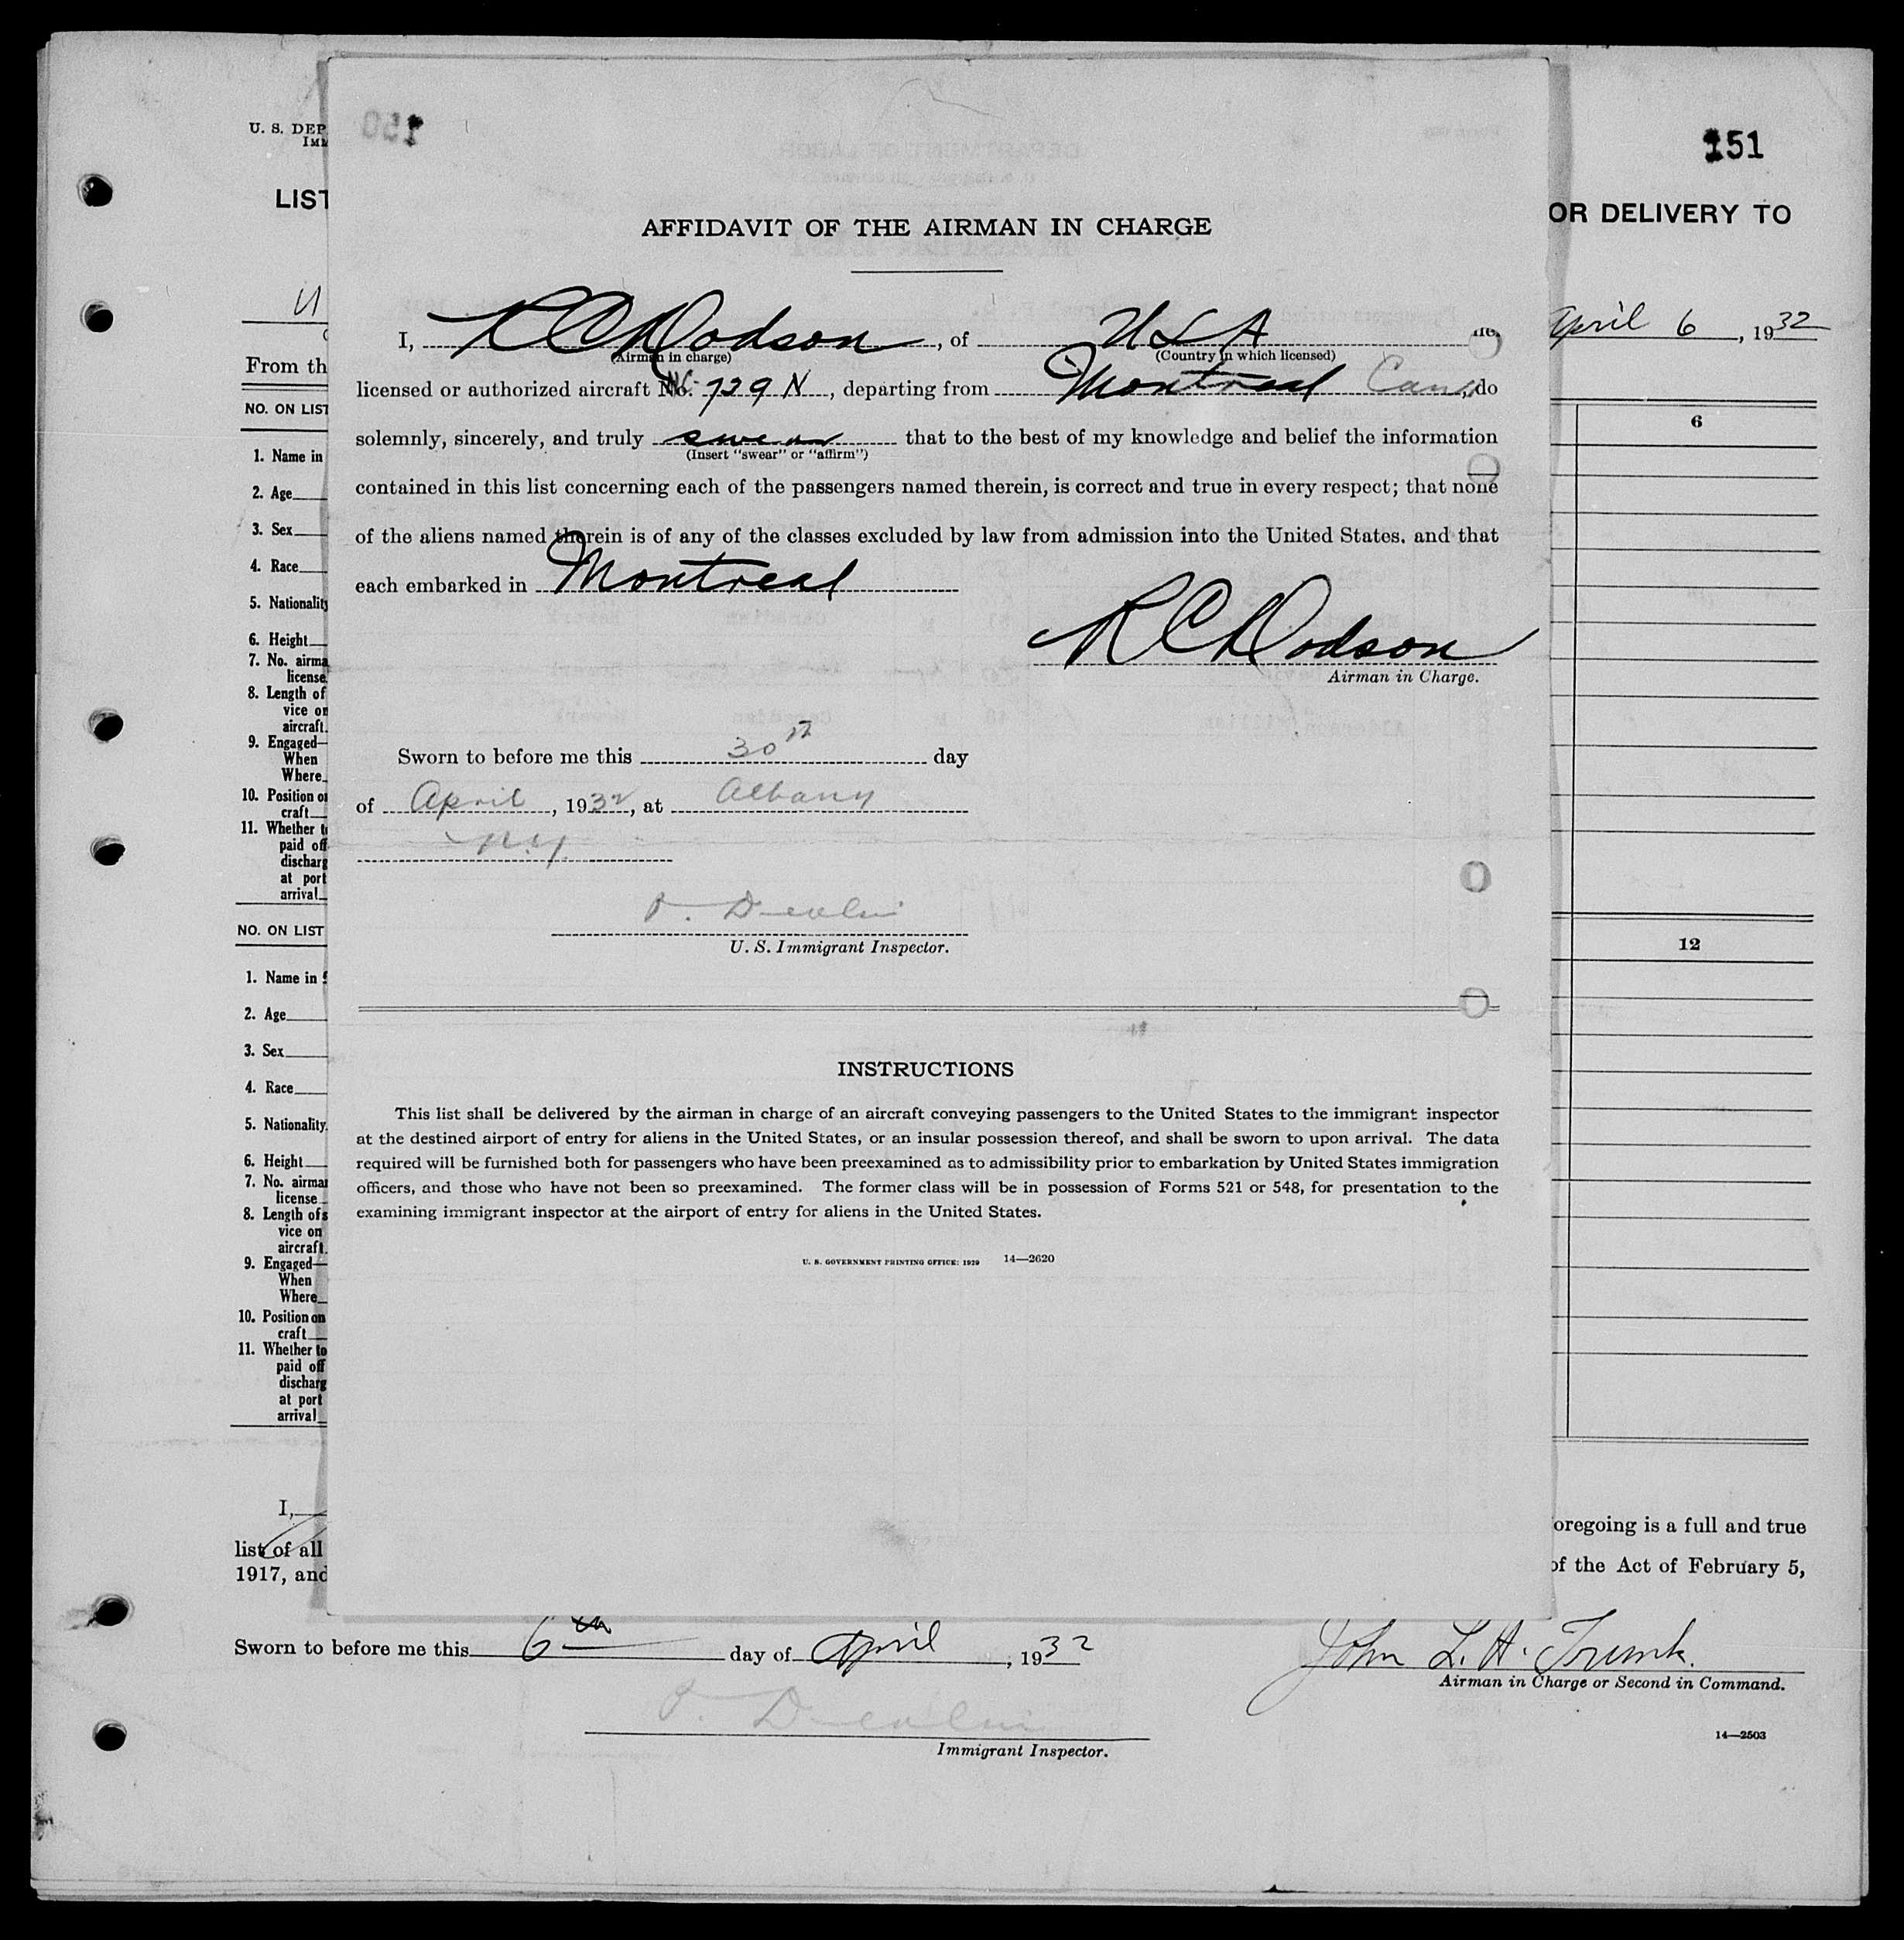 150
151
U. S. DEP
IMM
LIST
OR DELIVERY TO
U
April 6, 1932
From th
NO. ON LIST
6
1. Name in
2. Age
3. Sex
4. Race
5. Nationality
6. Height
7. No. airma
license
8. Length of
vice on
aircraft.
9. Engaged—
When
Where
10. Position o
craft
11. Whether t
paid off
discharg
at port
arrival
NO. ON LIST
12
1. Name in
2. Age
3. Sex
4. Race
5. Nationality
6. Height
7. No. airma
license
8. Length of s
vice on
aircraft.
9. Engaged—
When
Where
10. Position on
craft
11. Whether to
paid off
discharg
at port
arrival
AFFIDAVIT OF THE AIRMAN IN CHARGE
I, R C Dodson, of U S A
(Airman in charge) (Country in which licensed)
licensed or authorized aircraft No. NC-729 N, departing from Montreal Can, do
solemnly, sincerely, and truly swear that to the best of my knowledge and belief the information
(Insert "swear" or "affirm")
contained in this list concerning each of the passengers named therein, is correct and true in every respect; that none
of the aliens named therein is of any of the classes excluded by law from admission into the United States, and that
each embarked in Montreal
R C Dodson
Airman in Charge.
Sworn to before me this 30th day
of April, 1932, at Albany
N.Y.
U. S. Immigrant Inspector.
INSTRUCTIONS
This list shall be delivered by the airman in charge of an aircraft conveying passengers to the United States to the immigrant inspector
at the destined airport of entry for aliens in the United States, or an insular possession thereof, and shall be sworn to upon arrival. The data
required will be furnished both for passengers who have been preexamined as to admissibility prior to embarkation by United States immigration
officers, and those who have not been so preexamined. The former class will be in possession of Forms 521 or 548, for presentation to the
examining immigrant inspector at the airport of entry for aliens in the United States.
U. S. GOVERNMENT PRINTING OFFICE: 1929 14—2620
I,
oregoing is a full and true
list of all
of the Act of February 5,
1917, and
Sworn to before me this 6th day of April, 1932
John L. H. Trunk.
Airman in Charge or Second in Command.
Immigrant Inspector.
14—2503